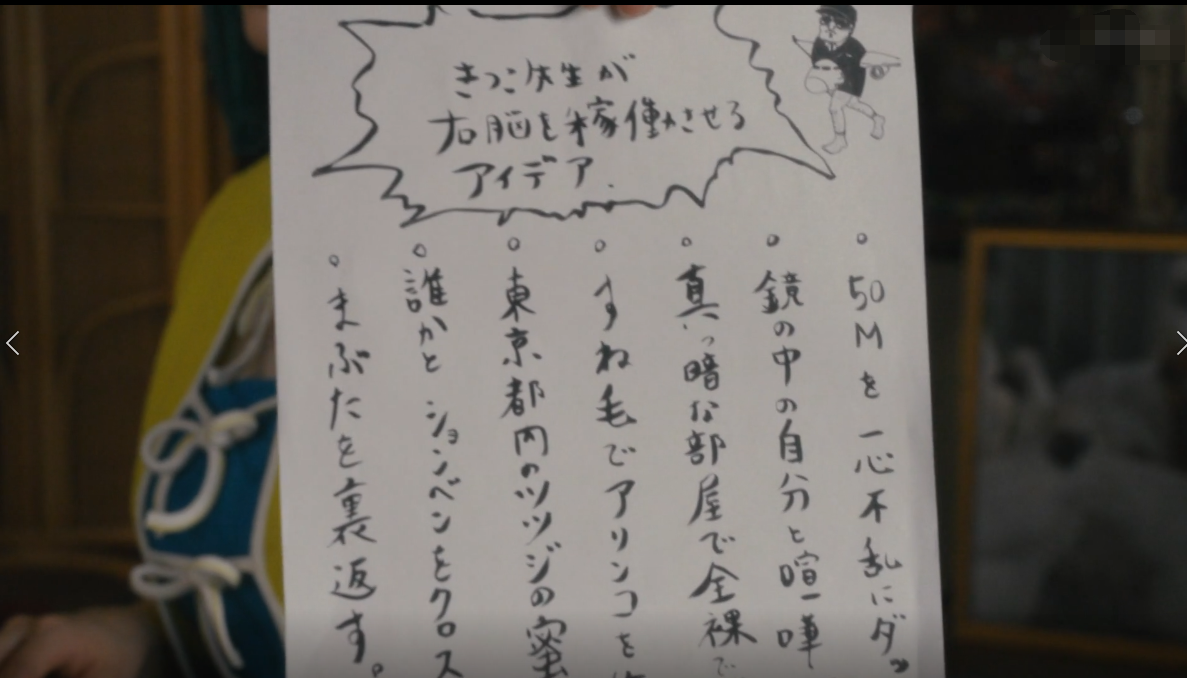 きっこ先生が
右脳を稼働させる
アイデア
。50Mを一心不乱にダッ
。鏡の中の自分と喧嘩
。真っ暗な部屋で全裸で
。すね毛でアリンコを
。東京都内のツツジの蜜
。誰かとションベンをクロス
。まぶたを裏返す。